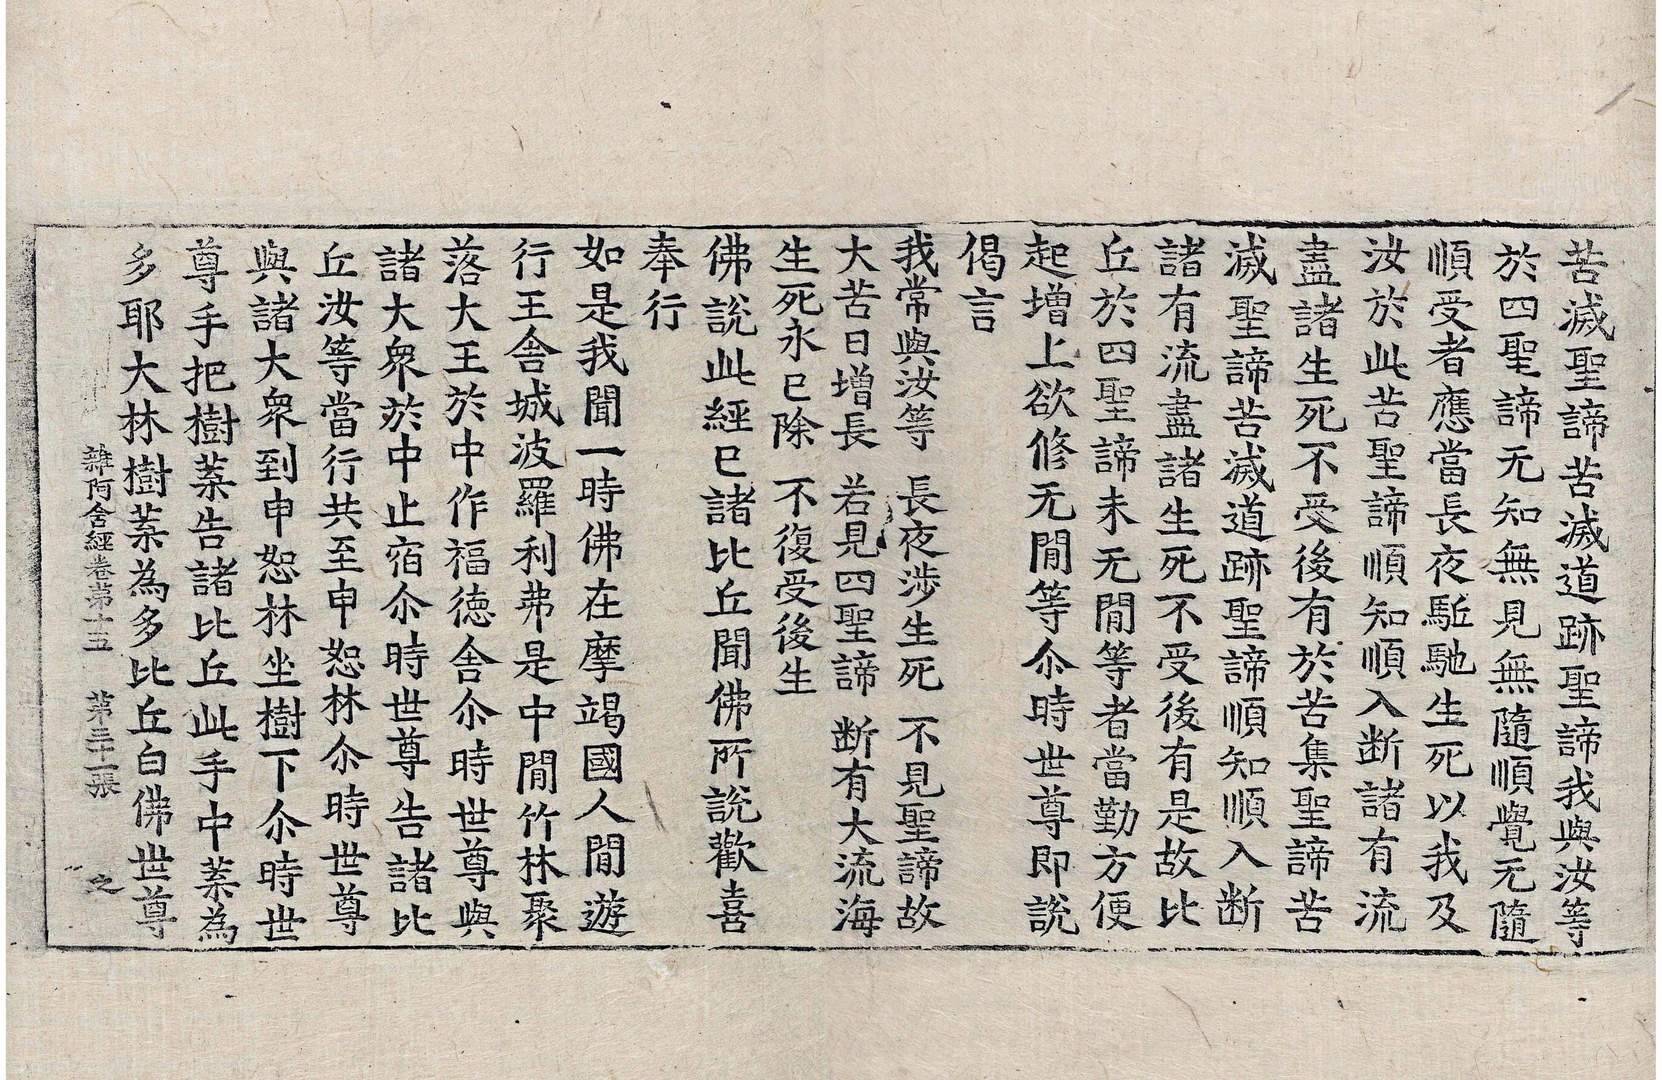 苦滅聖諦苦滅道跡聖諦我與汝等
於四聖諦无知無見無隨順覺无隨
順受者應當長夜駈馳生死以我及
汝於此苦聖諦順知順入断諸有流
盡諸生死不受後有於苦集聖諦苦
滅聖諦苦滅道跡聖諦順知順入断
諸有流盡諸生死不受後有是故比
丘於四聖諦未无閒等者當勤方便
起增上欲修无閒等尒時世尊即説
偈言
我常與汝等 長夜涉生死 不見聖諦故
大苦日增長 若見四聖諦 断有大流海
生死永已除 不復受後生
佛說此經已諸比丘聞佛所說歡喜
奉行
如是我聞一時佛在摩竭國人閒遊
行王舍城波羅利弗是中閒竹林聚
落大王於中作福德舍尒時世尊與
諸大衆於中止宿尒時世尊告諸比
丘汝等當行共至申恕林尒時世尊
與諸大衆到申恕林坐樹下尒時世
尊手把樹葉告諸比丘此手中葉為
多耶大林樹葉為多比丘白佛世尊
雜阿含經卷第十五 第三十二張 之